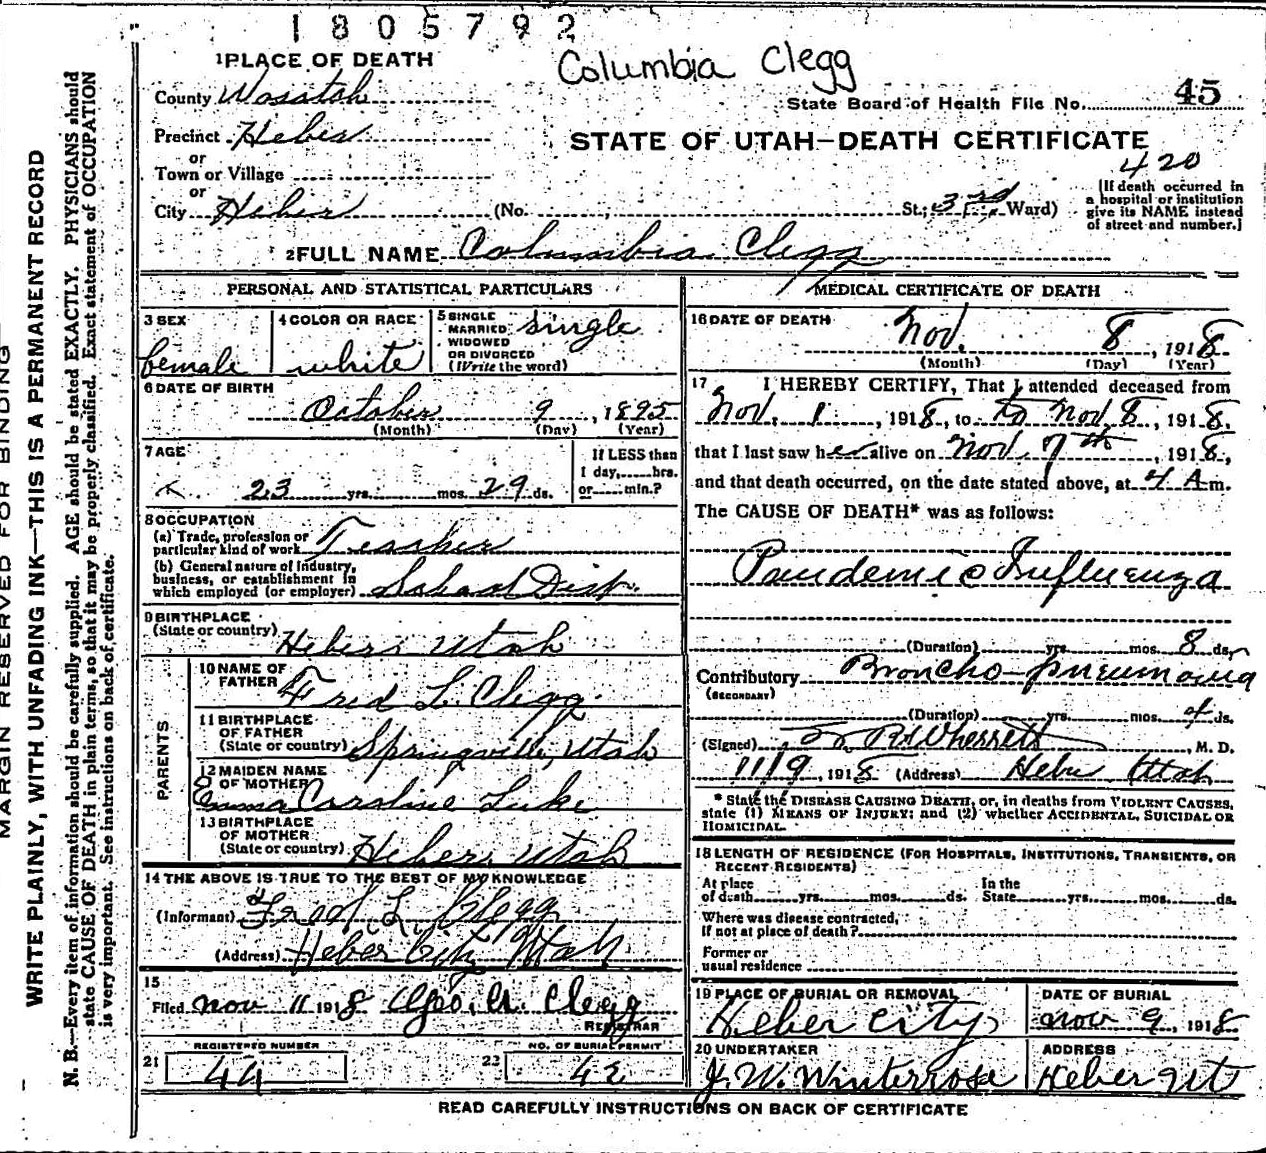 1805792
Columbia Clegg
1 PLACE OF DEATH
County Wasatch
State Board of Health File No. 45
Precinct Heber
STATE OF UTAH—DEATH CERTIFICATE
or
420
Town or Village
or
City Heber (No. St.; 3rd Ward)
[If death occurred in
a hospital or institution
give its NAME instead
of street and number.]
2 FULL NAME Columbia Clegg
PERSONAL AND STATISTICAL PARTICULARS
3 SEX
female
4 COLOR OR RACE
white
5 SINGLE
MARRIED
WIDOWED
OR DIVORCED
(Write the word)
single
6 DATE OF BIRTH
October 9, 1895
(Month) (Day) (Year)
7 AGE
23 yrs. mos. 29 ds.
If LESS than
1 day, hrs.
or min.?
8 OCCUPATION
(a) Trade, profession or
particular kind of work Teacher
(b) General nature of Industry,
business, or establishment in
which employed (or employer) School Dist.
9 BIRTHPLACE
(State or country) Heber, Utah
PARENTS
10 NAME OF
FATHER Fred L. Clegg
11 BIRTHPLACE
OF FATHER
(State or country) Springville, Utah
12 MAIDEN NAME
OF MOTHER
Emma Caroline Luke
13 BIRTHPLACE
OF MOTHER
(State or country) Heber, Utah
14 THE ABOVE IS TRUE TO THE BEST OF MY KNOWLEDGE
(Informant) Fred L. Clegg
(Address) Heber City Utah
15
Filed Nov 11 1918 Geo. A. Clegg
REGISTRAR
REGISTERED NUMBER
21 44
NO. OF BURIAL PERMIT
22 42
MEDICAL CERTIFICATE OF DEATH
16 DATE OF DEATH
Nov. 8, 1918
(Month) (Day) (Year)
17 I HEREBY CERTIFY, That I attended deceased from
Nov. 1, 1918, to to Nov. 8, 1918.
that I last saw her alive on Nov. 7th, 1918,
and that death occurred, on the date stated above, at 4 A m.
The CAUSE OF DEATH* was as follows:
Pandemic Influenza
(Duration) yrs. mos. 8 ds.
Contributory Broncho-pneumonia
(SECONDARY)
(Duration) yrs. mos. 4 ds.
(Signed) Wherritt, M. D.
11/9, 1918 (Address) Heber Utah
* State the DISEASE CAUSING DEATH, or, in deaths from VIOLENT CAUSES,
state (1) MEANS OF INJURY; and (2) whether ACCIDENTAL, SUICIDAL OR
HOMICIDAL.
18 LENGTH OF RESIDENCE (FOR HOSPITALS, INSTITUTIONS, TRANSIENTS, OR
RECENT RESIDENTS)
At place
of death yrs. mos. ds.
In the
State yrs. mos. ds.
Where was disease contracted,
if not at place of death?
Former or
usual residence
19 PLACE OF BURIAL OR REMOVAL
Heber City
DATE OF BURIAL
Nov 9, 1918
20 UNDERTAKER
J. W. Winterrose
ADDRESS
Heber Ut
READ CAREFULLY INSTRUCTIONS ON BACK OF CERTIFICATE
MARGIN RESERVED FOR BINDING
WRITE PLAINLY, WITH UNFADING INK—THIS IS A PERMANENT RECORD
N. B.—Every item of information should be carefully supplied. AGE should be stated EXACTLY. PHYSICIANS should
state CAUSE OF DEATH in plain terms, so that it may be properly classified. Exact statement of OCCUPATION
is very important. See instructions on back of certificate.